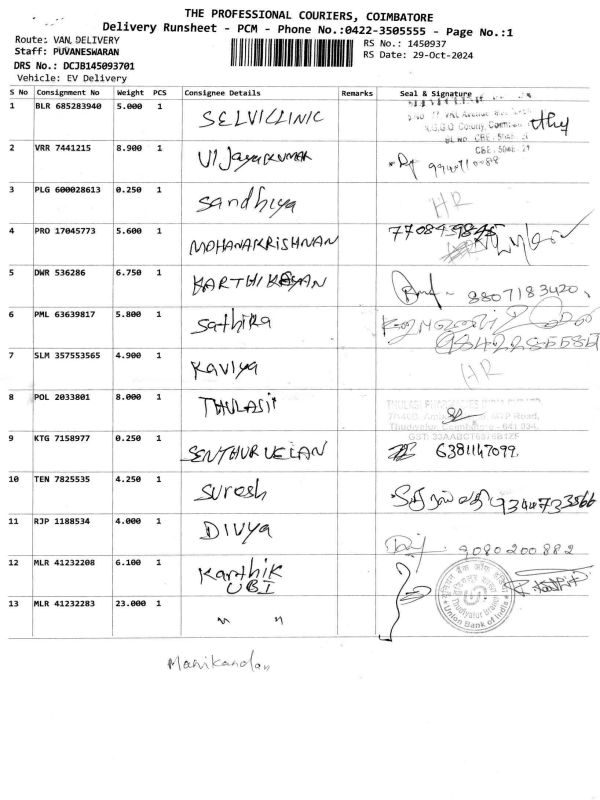 THE PROFESSIONAL COURIERS, COIMBATORE
Delivery Runsheet - PCM - Phone No.:0422-3505555 - Page No.:1
Route: VAN DELIVERY
RS No.: 1450937
Staff: PUVANESWARAN
RS Date: 29-Oct-2024
DRS No.: DCJB145093701
Vehicle: EV Delivery
S No Consignment No Weight PCS Consignee Details Remarks Seal & Signature
1 BLR 685283940 5.000 1 SELVICLINIC
2 VRR 7441215 8.900 1 VIJayakumar
3 PLG 600028613 0.250 1 Sandhiya HR
4 PRO 17045773 5.600 1 MOHANAKRISHNAN
5 DWR 536286 6.750 1 KARTHIKEYAN 8807183420
6 PML 63639817 5.800 1 Sathika
7 SLM 357553565 4.900 1 Kaviya HR
8 POL 2033801 8.000 1 THULASI
9 KTG 7158977 0.250 1 SENTHUR VELAN 6381147099
10 TEN 7825535 4.250 1 Suresh 9344733566
11 RJP 1188534 4.000 1 Divya 9080200882
12 MLR 41232208 6.100 1 Karthik
UBI
Union Bank of India
13 MLR 41232283 23.000 1 " "
Manikandan